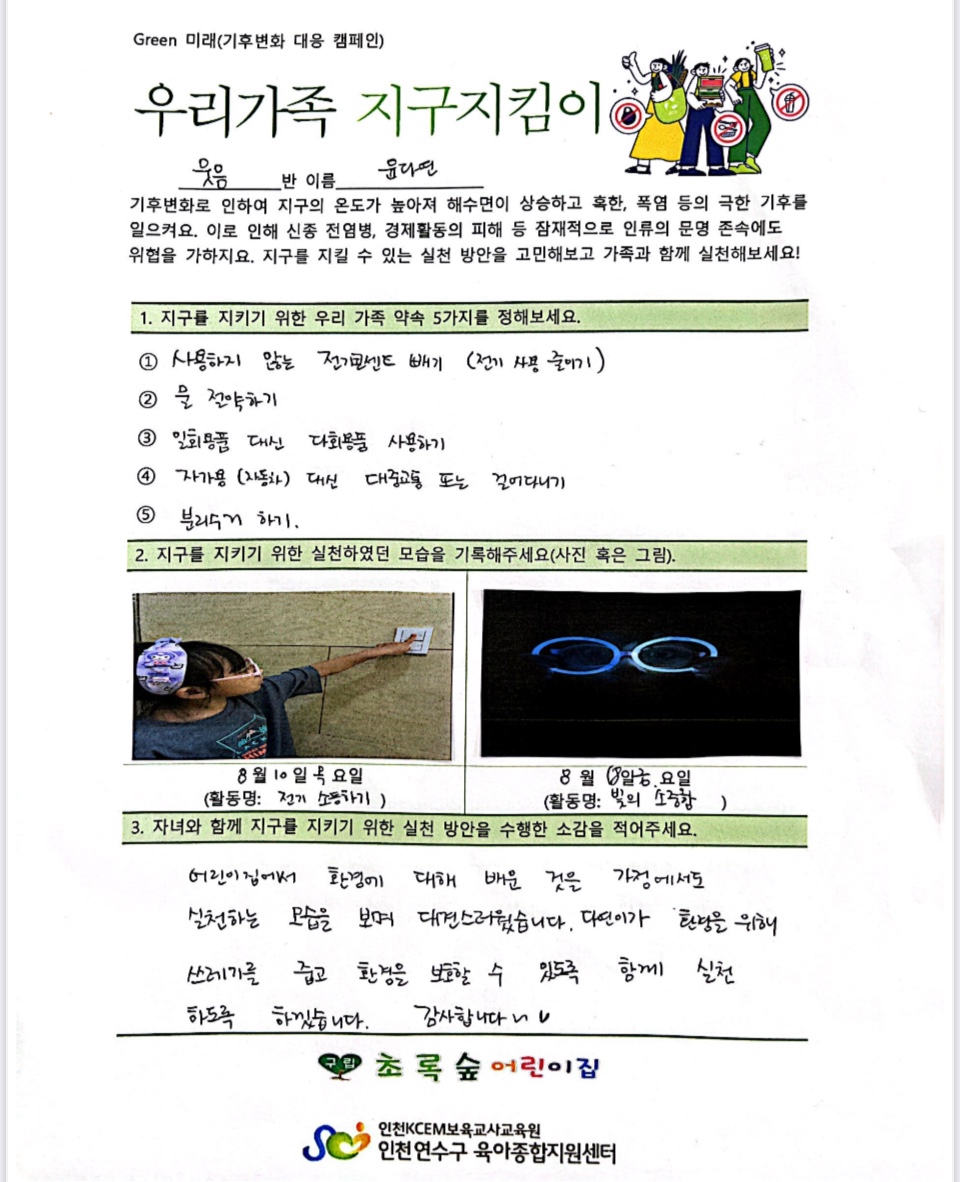 Green 미래(기후변화 대응 캠페인)
우리가족 지구지킴이
웃음 반 이름 윤다연
기후변화로 인하여 지구의 온도가 높아져 해수면이 상승하고 혹한, 폭염 등의 극한 기후를
일으켜요. 이로 인해 신종 전염병, 경제활동의 피해 등 잠재적으로 인류의 문명 존속에도
위협을 가하지요. 지구를 지킬 수 있는 실천 방안을 고민해보고 가족과 함께 실천해보세요!
1. 지구를 지키기 위한 우리 가족 약속 5가지를 정해보세요.
① 사용하지 않는 전기콘센트 빼기 (전기 사용 줄이기)
② 물 절약하기
③ 일회용품 대신 다회용품 사용하기
④ 자가용 (자동차) 대신 대중교통 또는 걸어다니기
⑤ 분리수거 하기.
2. 지구를 지키기 위한 실천하였던 모습을 기록해주세요(사진 혹은 그림).
8월 10일 목요일
(활동명: 전기 소등하기 )
8월 일 요일
(활동명: 빛의 소중함 )
3. 자녀와 함께 지구를 지키기 위한 실천 방안을 수행한 소감을 적어주세요.
어린이집에서 환경에 대해 배운 것을 가정에서도
실천하는 모습을 보며 대견스러웠습니다. 다연이가 환경을 위해
쓰레기를 줍고 환경을 보호할 수 있도록 함께 실천
하도록 하겠습니다. 감사합니다
구립 초록숲어린이집
인천KCEM보육교사교육원
인천연수구 육아종합지원센터